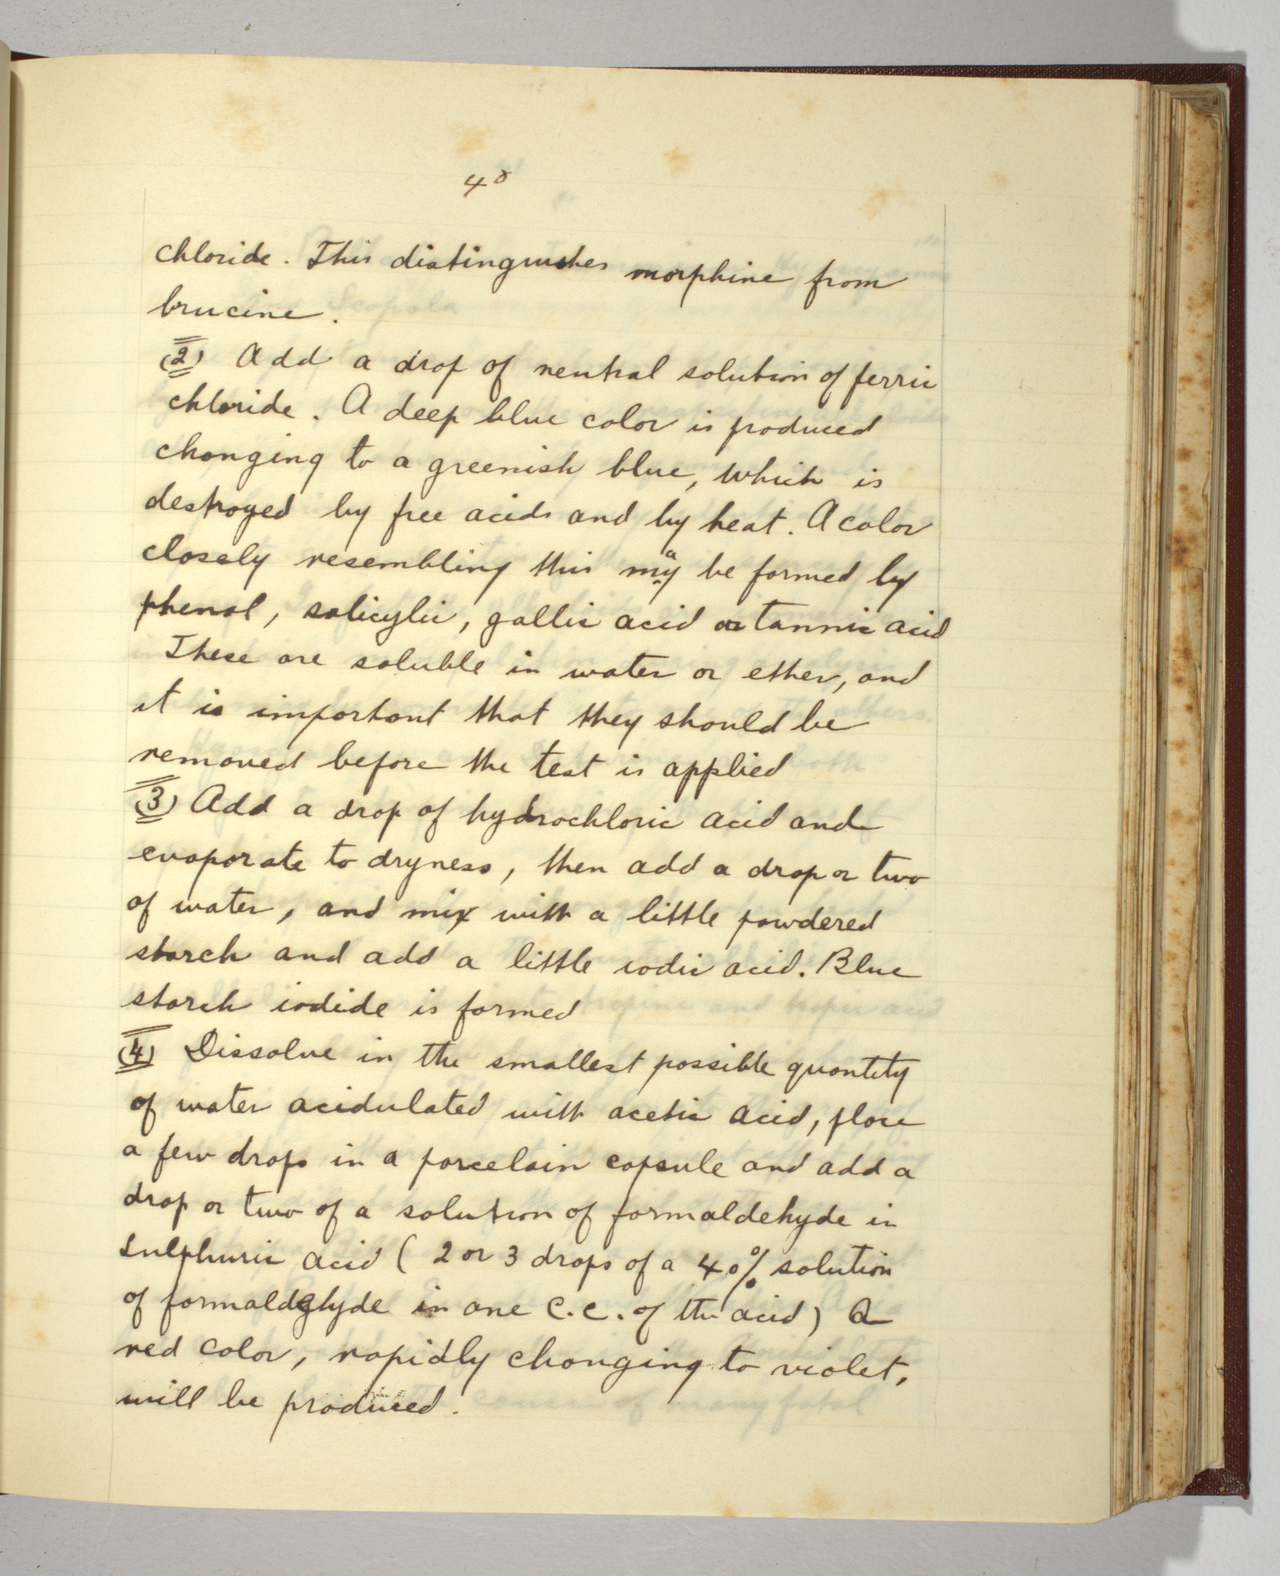 40
chloride. This distinguishes morphine from
brucine.
(2) Add a drop of neutral solution of ferric
chloride. A deep blue color is produced
changing to a greenish blue, which is
destroyed by free acids and by heat. A color
closely resembling this may be formed by
phenol, salicylic, gallic acid or tannic acid
These are soluble in water or ether, and
it is important that they should be
removed before the test is applied
(3) Add a drop of hydrochloric acid and
evaporate to dryness, then add a drop or two
of water, and mix with a little powdered
starch and add a little iodic acid. Blue
starch iodide is formed
(4) Dissolve in the smallest possible quantity
of water acidulated with acetic acid, place
a few drops in a porcelain capsule and add a
drop or two of a solution of formaldehyde in
sulphuric acid ( 2 or 3 drops of a 40% solution
of formaldehyde in one c.c. of the acid) A
red color, rapidly changing to violet,
will be produced.